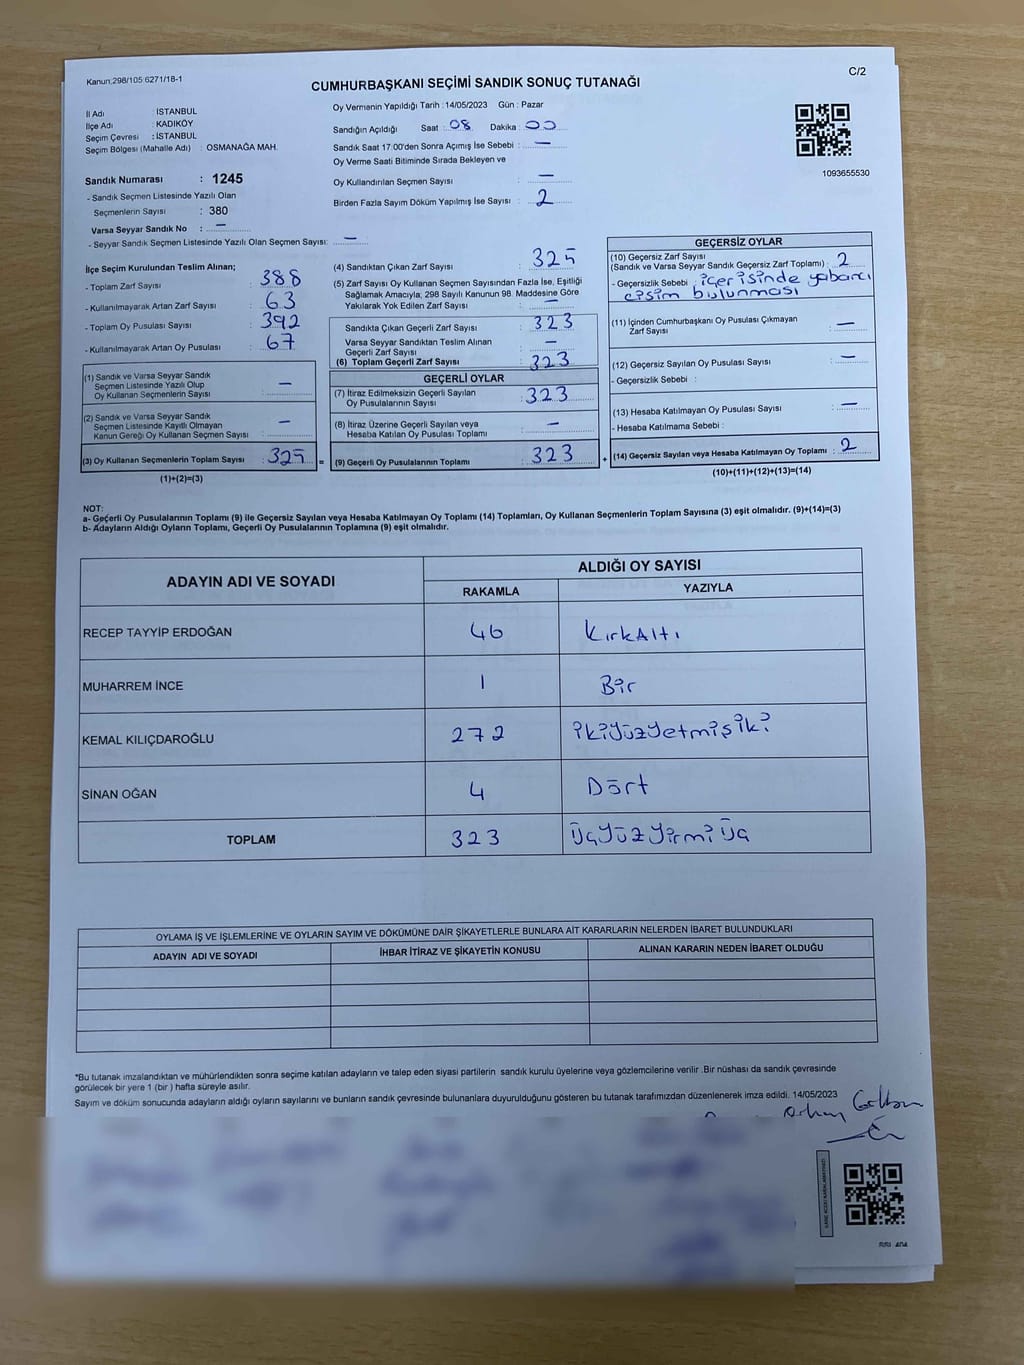 Kanun:298/105 6271/18-1
C/2
CUMHURBAŞKANI SEÇİMİ SANDIK SONUÇ TUTANAĞI
İl Adı : İSTANBUL
İlçe Adı : KADIKÖY
Seçim Çevresi : İSTANBUL
Seçim Bölgesi (Mahalle Adı) : OSMANAĞA MAH.
Sandık Numarası : 1245
- Sandık Seçmen Listesinde Yazılı Olan
Seçmenlerin Sayısı : 380
Varsa Seyyar Sandık No : —
- Seyyar Sandık Seçmen Listesinde Yazılı Olan Seçmen Sayısı: —
Oy Vermenin Yapıldığı Tarih : 14/05/2023 Gün : Pazar
Sandığın Açıldığı Saat : 08 Dakika : 00
Sandık Saat 17:00'den Sonra Açımış İse Sebebi : —
Oy Verme Saati Bitiminde Sırada Bekleyen ve
Oy Kullandırılan Seçmen Sayısı : —
Birden Fazla Sayım Döküm Yapılmış İse Sayısı : 2
1093655530
İlçe Seçim Kurulundan Teslim Alınan;
- Toplam Zarf Sayısı : 388
- Kullanılmayarak Artan Zarf Sayısı : 63
- Toplam Oy Pusulası Sayısı : 392
- Kullanılmayarak Artan Oy Pusulası : 67
(1) Sandık ve Varsa Seyyar Sandık
Seçmen Listesinde Yazılı Olup
Oy Kullanan Seçmenlerin Sayısı : —
(2) Sandık ve Varsa Seyyar Sandık
Seçmen Listesinde Kayıtlı Olmayan
Kanun Gereği Oy Kullanan Seçmen Sayısı : —
(3) Oy Kullanan Seçmenlerin Toplam Sayısı : 325
(1)+(2)=(3)
=
(4) Sandıktan Çıkan Zarf Sayısı : 325
(5) Zarf Sayısı Oy Kullanan Seçmen Sayısından Fazla İse, Eşitliği
Sağlamak Amacıyla, 298 Sayılı Kanunun 98. Maddesine Göre
Yakılarak Yok Edilen Zarf Sayısı : —
Sandıkta Çıkan Geçerli Zarf Sayısı : 323
Varsa Seyyar Sandıktan Teslim Alınan
Geçerli Zarf Sayısı : —
(6) Toplam Geçerli Zarf Sayısı : 323
GEÇERLİ OYLAR
(7) İtiraz Edilmeksizin Geçerli Sayılan
Oy Pusulalarının Sayısı : 323
(8) İtiraz Üzerine Geçerli Sayılan veya
Hesaba Katılan Oy Pusulası Toplamı : —
(9) Geçerli Oy Pusulalarının Toplamı : 323
+
GEÇERSİZ OYLAR
(10) Geçersiz Zarf Sayısı
(Sandık ve Varsa Seyyar Sandık Geçersiz Zarf Toplamı) : 2
- Geçersizlik Sebebi : içerisinde yabancı
cisim bulunması
(11) İçinden Cumhurbaşkanı Oy Pusulası Çıkmayan
Zarf Sayısı : —
(12) Geçersiz Sayılan Oy Pusulası Sayısı : —
- Geçersizlik Sebebi :
(13) Hesaba Katılmayan Oy Pusulası Sayısı : —
- Hesaba Katılmama Sebebi :
(14) Geçersiz Sayılan veya Hesaba Katılmayan Oy Toplamı : 2
(10)+(11)+(12)+(13)=(14)
NOT:
a- Geçerli Oy Pusulalarının Toplamı (9) ile Geçersiz Sayılan veya Hesaba Katılmayan Oy Toplamı (14) Toplamları, Oy Kullanan Seçmenlerin Toplam Sayısına (3) eşit olmalıdır. (9)+(14)=(3)
b- Adayların Aldığı Oyların Toplamı, Geçerli Oy Pusulalarının Toplamına (9) eşit olmalıdır.
ADAYIN ADI VE SOYADI ALDIĞI OY SAYISI
RAKAMLA YAZIYLA
RECEP TAYYİP ERDOĞAN 46 KırkAltı
MUHARREM İNCE 1 Bir
KEMAL KILIÇDAROĞLU 272 ikiyüzyetmişiki
SİNAN OĞAN 4 Dört
TOPLAM 323 Üçyüzyirmi Üç
OYLAMA İŞ VE İŞLEMLERİNE VE OYLARIN SAYIM VE DÖKÜMÜNE DAİR ŞİKAYETLERLE BUNLARA AİT KARARLARIN NELERDEN İBARET BULUNDUKLARI
ADAYIN ADI VE SOYADI İHBAR İTİRAZ VE ŞİKAYETİN KONUSU ALINAN KARARIN NEDEN İBARET OLDUĞU
*Bu tutanak imzalandıktan ve mühürlendikten sonra seçime katılan adayların ve talep eden siyasi partilerin sandık kurulu üyelerine veya gözlemcilerine verilir .Bir nüshası da sandık çevresinde
görülecek bir yere 1 (bir ) hafta süreyle asılır.
Sayım ve döküm sonucunda adayların aldığı oyların sayılarını ve bunların sandık çevresinde bulunanlara duyurulduğunu gösteren bu tutanak tarafımızdan düzenlenerek imza edildi. 14/05/2023
Orhan